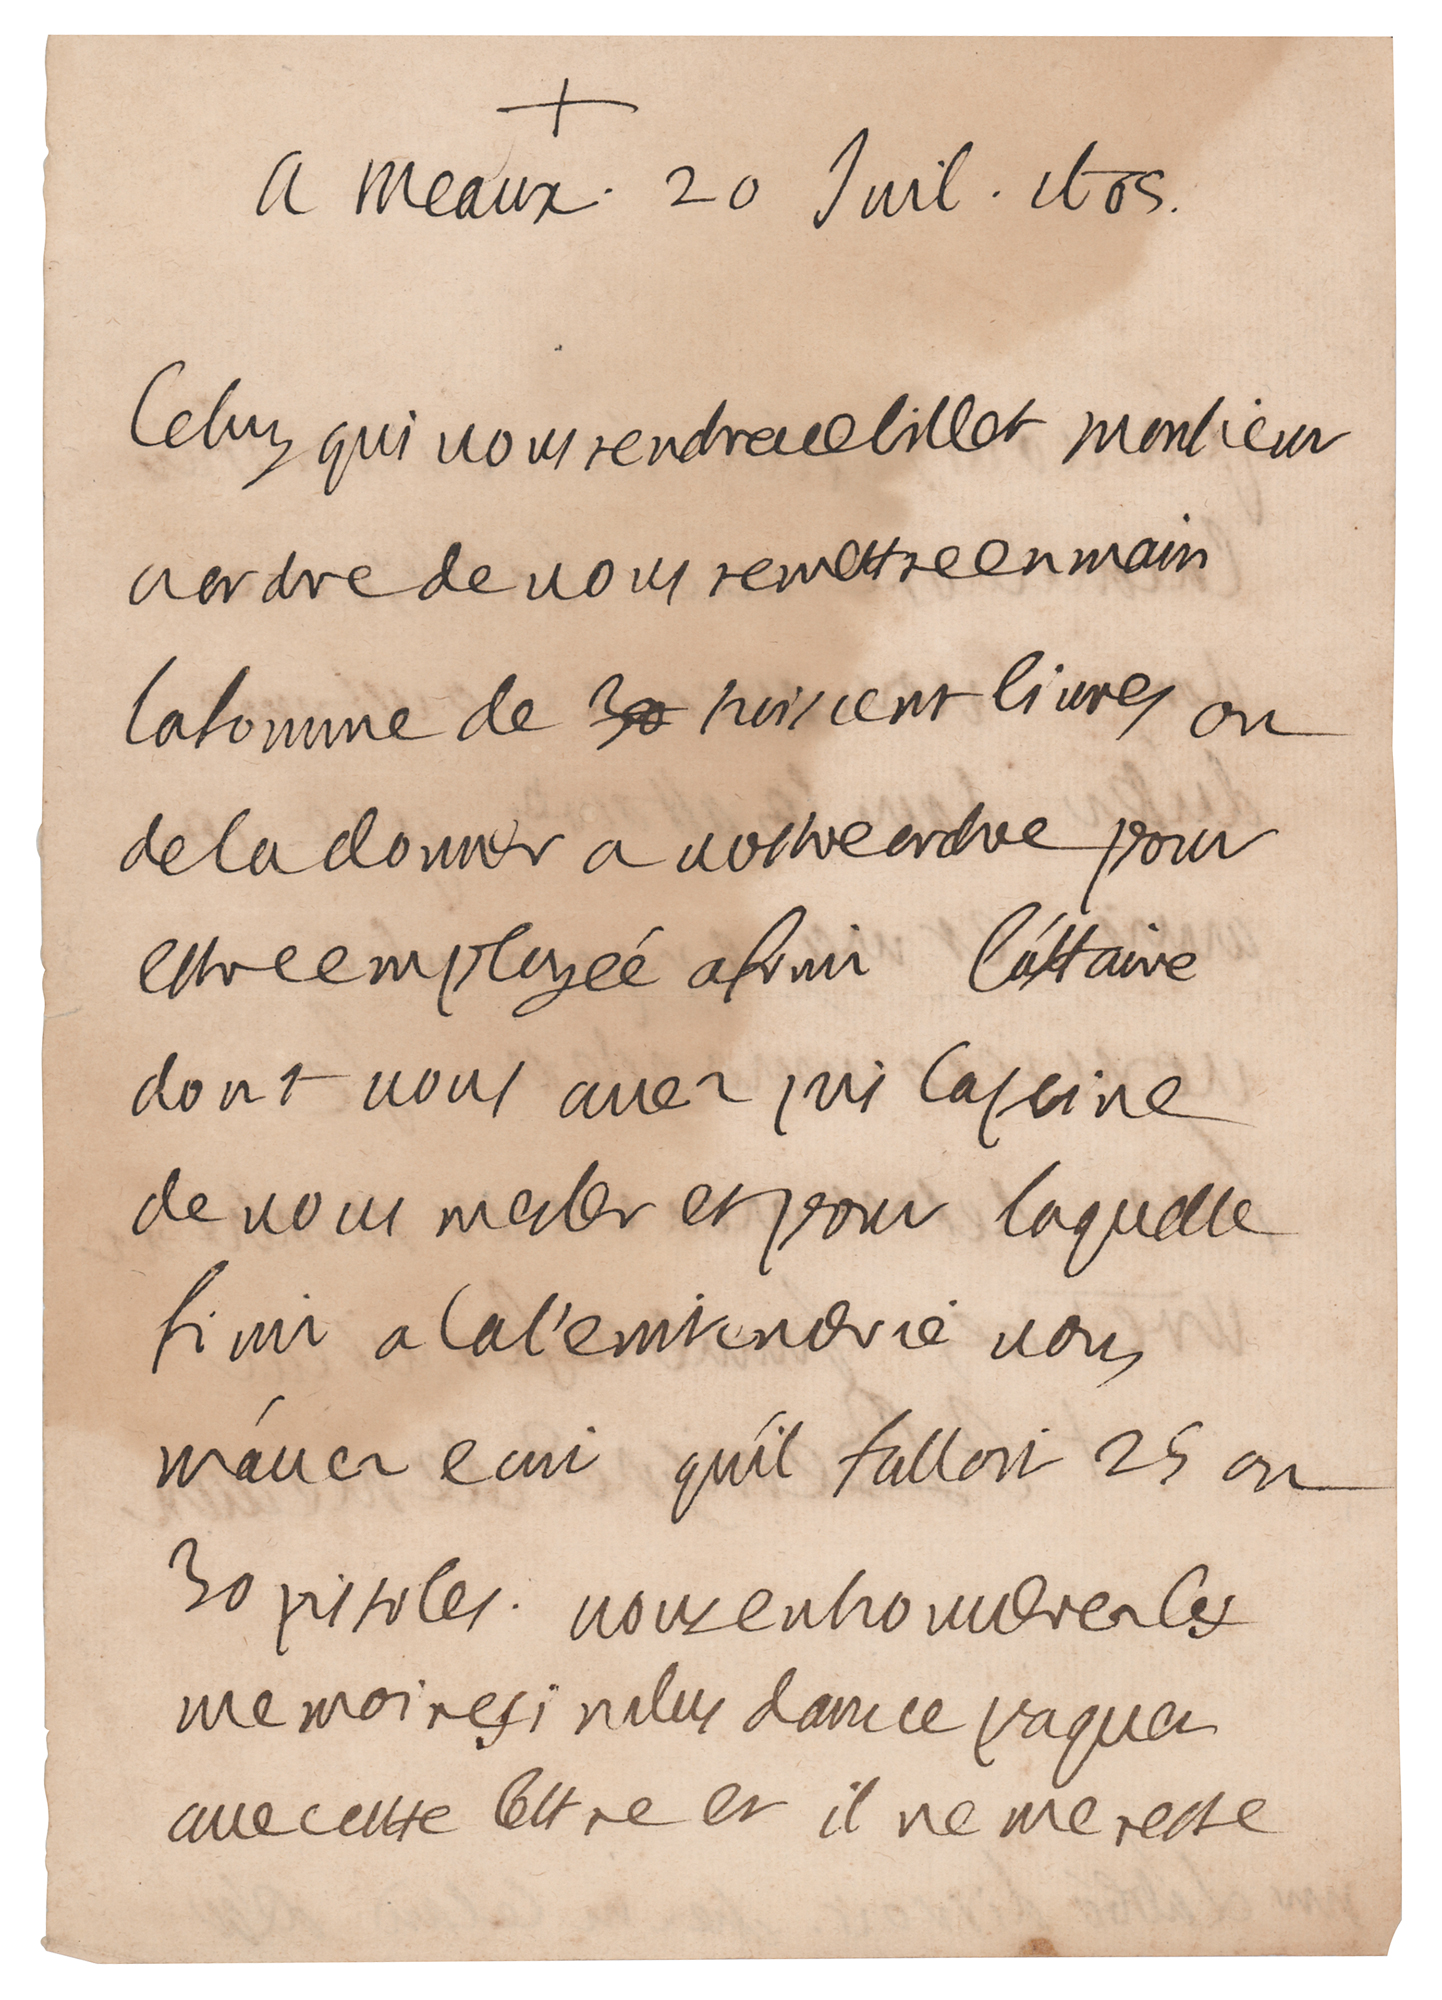 +
a meaux. 20 Juil.
Celuy qui vous rendra ce billet monsieur
a ordre de vous remettre en main
la somme de 30 trois cent livres ou
de la donner a vostre ordre pour
estre employeé a finir l'affaire
dont vous avez pris la peine
de vous mesler et pour laquelle
finir vous
m'avez ecrit qu'il falloit 25 ou
30 pistoles. vous en trouverez les
memoires inclus dans ce paquet
avec cette lettre et il ne me reste